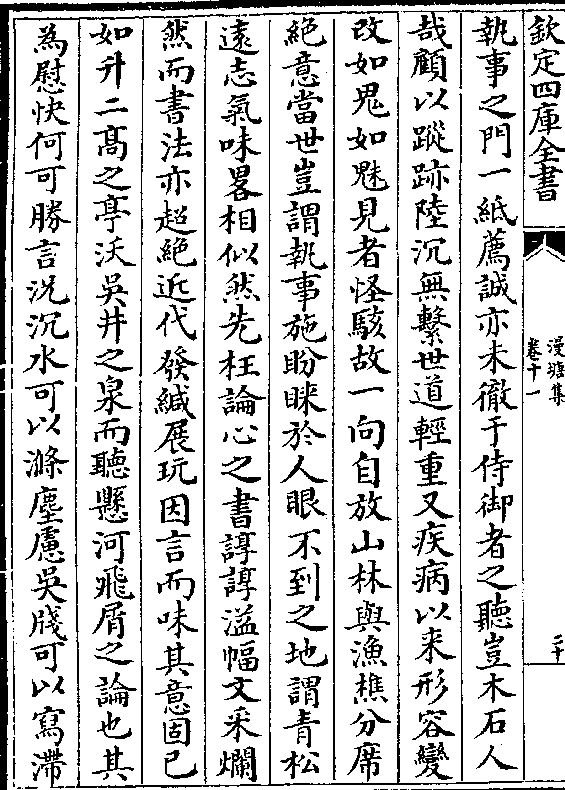 欽定四庫全書
漫塘集
卷十一
二十
執事之門一紙薦誠亦未徹于侍御者之聽豈木石人
哉顧以蹤跡陸沉無繫世道輕重又疾病以来形容變
改如鬼如魅見者怪駭故一向自放山林與漁樵分席
絶意當世豈謂執事施盼睞於人眼不到之地謂青松
遠志氣味畧相似然先枉論心之書諄諄溢幅文采爛
然而書法亦超絶近代發緘展玩因言而味其意固已
如升二髙之亭沃吳井之泉而聽懸河飛屑之論也其
為慰快何可勝言況沉水可以滌塵慮吳牋可以寫滯